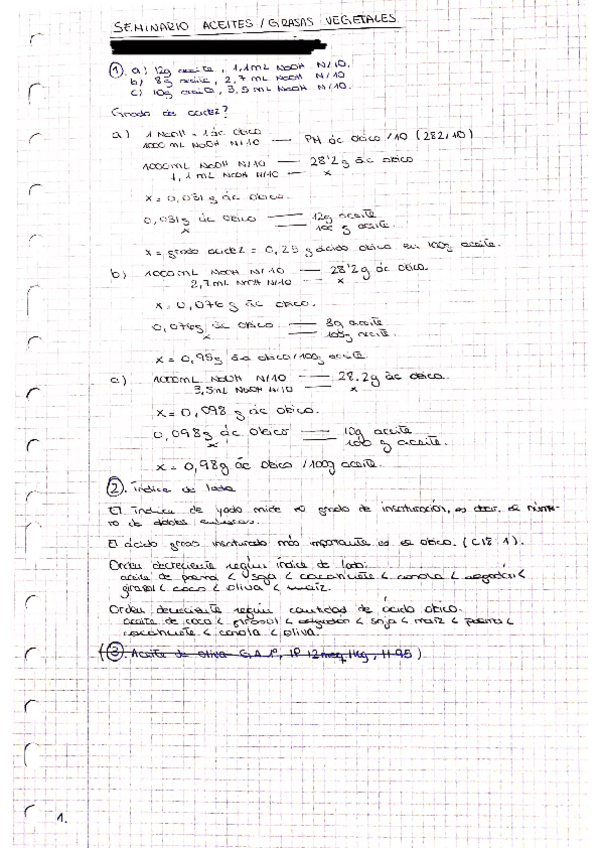 SEMINARIO ACEITES / GRASAS VEGETALES
① a) 12g aceite, 1,1mL NaOH N/10.
b) 8g aceite, 2,7 mL NaOH N/10
c) 10g aceite, 3,5 mL NaOH N/10.
Grado de acidez?
a) 1 NaOH = 1 ác oleico
1000 mL NaOH N/10 — PM ác oleico /10 (282/10)
1000mL NaOH N/10 — 28'2g ác oleico
1,1 mL NaOH N/10 — x
x = 0,031 g ác oleico.
0,031g ác oleico — 12g aceite
x — 100 g aceite.
x = grado acidez = 0,25 g ácido oleico en 100g aceite.
b) 1000mL NaOH N/10 — 28'2g ác oleico.
2,7mL NaOH N/10 — x
x = 0,076 g ác oleico.
0,076g ác oleico — 8g aceite
x — 100g aceite.
x = 0,95g ác oleico/100g aceite
c) 1000mL NaOH N/10 — 28.2g ác oleico
3,5mL NaOH N/10 — x
x = 0,098 g ác oleico.
0,098g ác oleico — 10g aceite
x — 100 g aceite.
x = 0,98g ác oleico /100g aceite.
② . Índice de Iodo
El índice de yodo mide el grado de insaturación, es decir, el núme-
ro de dobles enlaces.
El ácido graso insaturado más importante es el oleico. (C18:1).
Orden decreciente según índice de Iodo:
aceite de palma < soja < cacahuete < canola < algodón <
girasol < coco < oliva < maíz.
Orden decreciente según cantidad de ácido oleico.
aceite de coco < girasol < algodón < soja < maíz < palma <
cacahuete < canola < oliva.
(③. Aceite de oliva G.A 1º, IP 12meq/kg, II 95)
1.